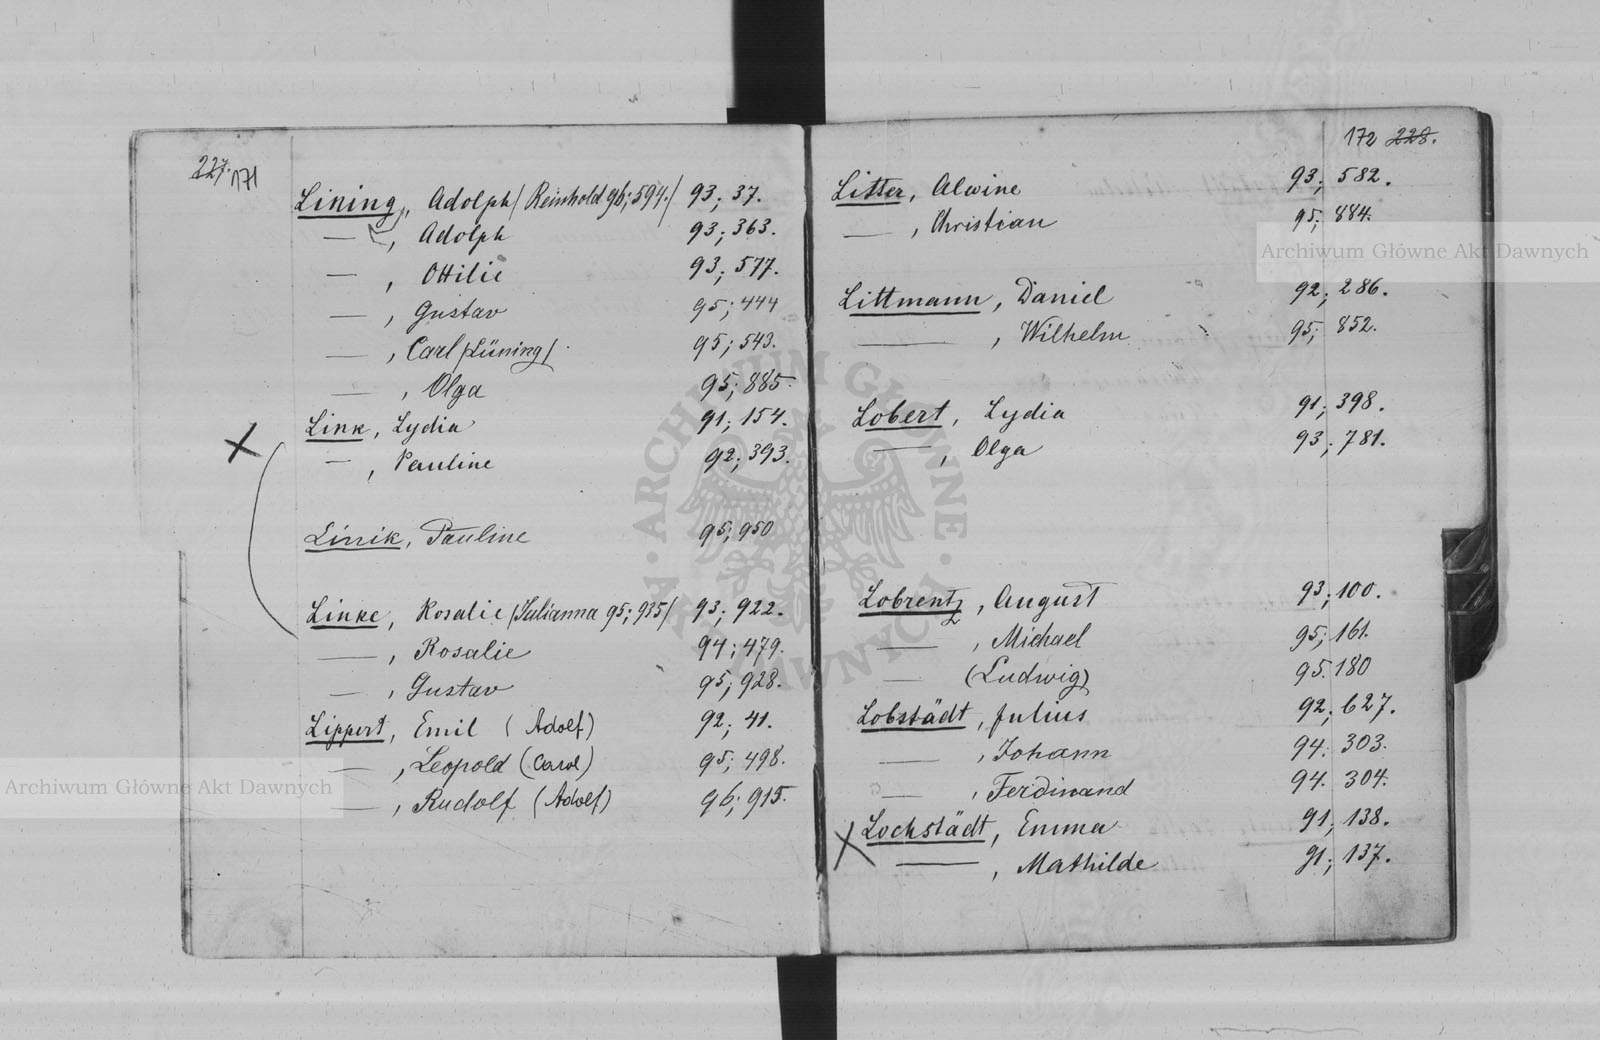 227. 171
Lining, Adolph / Reinhold 96; 594. / 93; 37.
— , Adolph 93; 363.
— , Ottilie 93; 577.
— , Gustav 95; 444
— , Carl /Lüning/ 95; 543.
— , Olga 95; 885.
Link, Lydia 91; 154.
— , Pauline 92; 393.
Linik, Pauline 95; 950
Linke, Rosalie /Julianna 95; 935/ 93; 922.
— , Rosalie 94; 479.
— , Gustav 95; 928.
Lippert, Emil (Adolf) 92; 41.
— , Leopold (Carol) 95; 498.
— , Rudolf (Adolf) 96; 915.
172 228.
Litter, Alwine 93; 582.
— , Christian 95; 884.
Littmann, Daniel 92; 286.
— , Wilhelm 95; 852.
Lobert, Lydia 91; 398.
— , Olga 93; 781.
Lobrentz, August 93; 100.
— , Michael 95; 161.
— (Ludwig) 95. 180
Lobstädt, Julius 92; 627.
— , Johann 94. 303.
— , Ferdinand 94. 304.
Lochstädt, Emma 91; 138.
— , Mathilde 91; 137.
Archiwum Główne Akt Dawnych
Archiwum Główne Akt Dawnych
ARCHIWUM GŁÓWNE AKT DAWNYCH